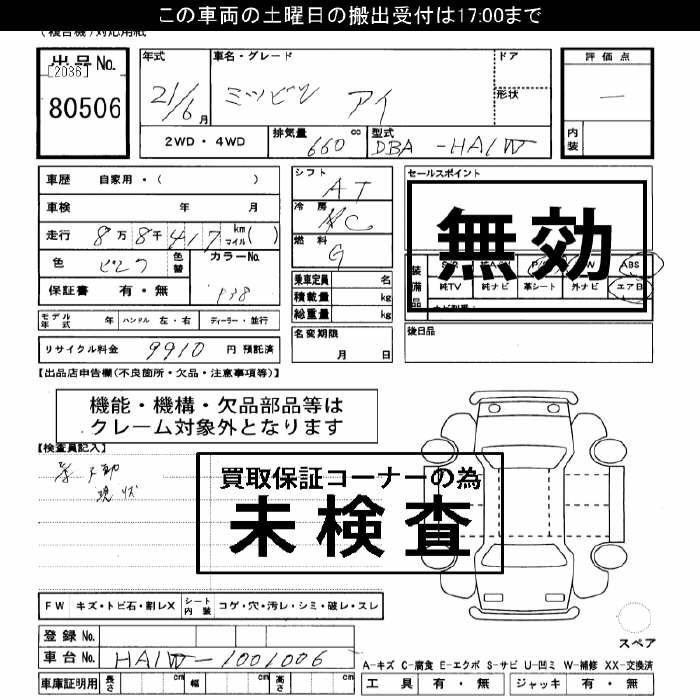 この車両の土曜日の搬出受付は17:00まで
(複合機)対応用紙
出品No.
[2036]
80506
年式
21/6月
車名・グレード
ミツビシ アイ
ドア
形状
評価点
—
内装
2WD・4WD
排気量
660 cc
型式
DBA -HA1W
車歴 自家用・( )
車検 年 月
走行 8万8千417 km マイル( )
色 ピンク
色替
カラーNo.
P38
保証書 有・無
シフト
AT
冷房
AC
燃料
G
乗車定員 名
積載量 kg
総重量 kg
セールスポイント
無効
装備品
ABS
純TV 純ナビ 革シート 外ナビ エアB
モデル年式 年 ハンドル 左・右 ディーラー・並行
名変期限
月 日
後日品
リサイクル料金 9910 円 預託済
【出品店申告欄(不良箇所・欠品・注意事項等)】
機能・機構・欠品部品等は
クレーム対象外となります
【検査員記入】
不動
現状
買取保証コーナーの為
未検査
FW キズ・トビ石・割レX シート内装 コゲ・穴・汚レ・シミ・破レ・スレ
スペア
登録No.
車台No. HA1W-1001006
A-キズ C-腐食 E-エクボ S-サビ U-凹ミ W-補修 XX-交換済
車庫証明用 長さ cm 幅 cm 高さ cm
工具 有・無 ジャッキ 有・無